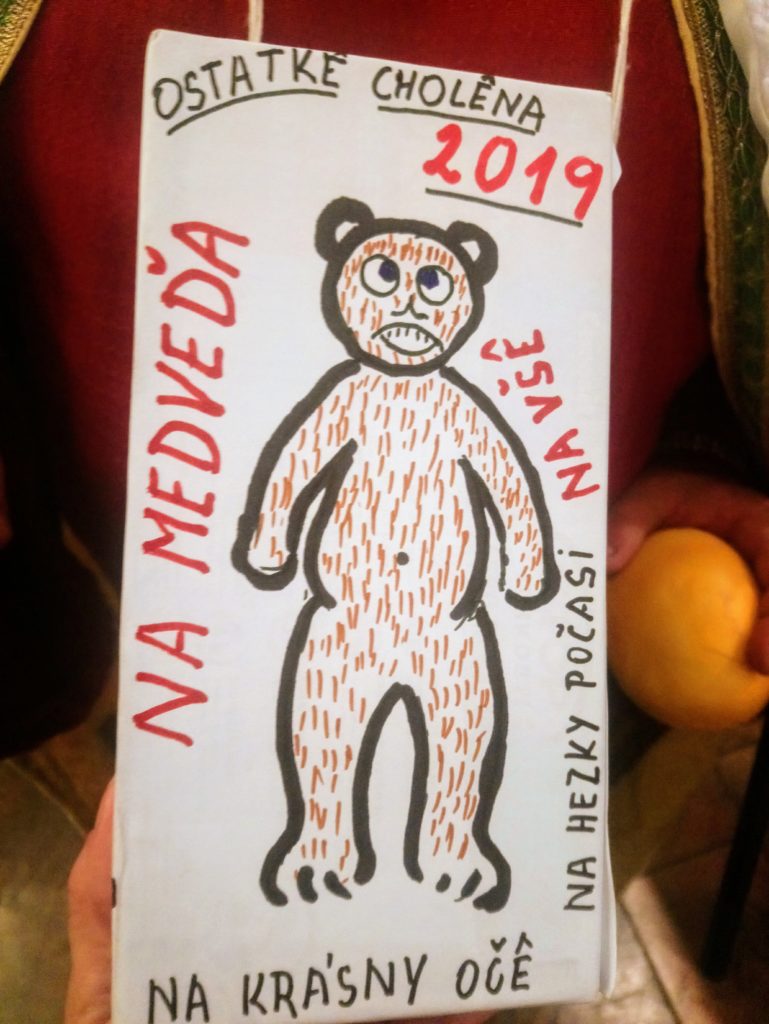 OSTATKÊ CHOLÊNA
2019
NA MEDVEĎA
NA VŠÊ
NA HEZKY POČASI
NA KRÁSNY OČÊ